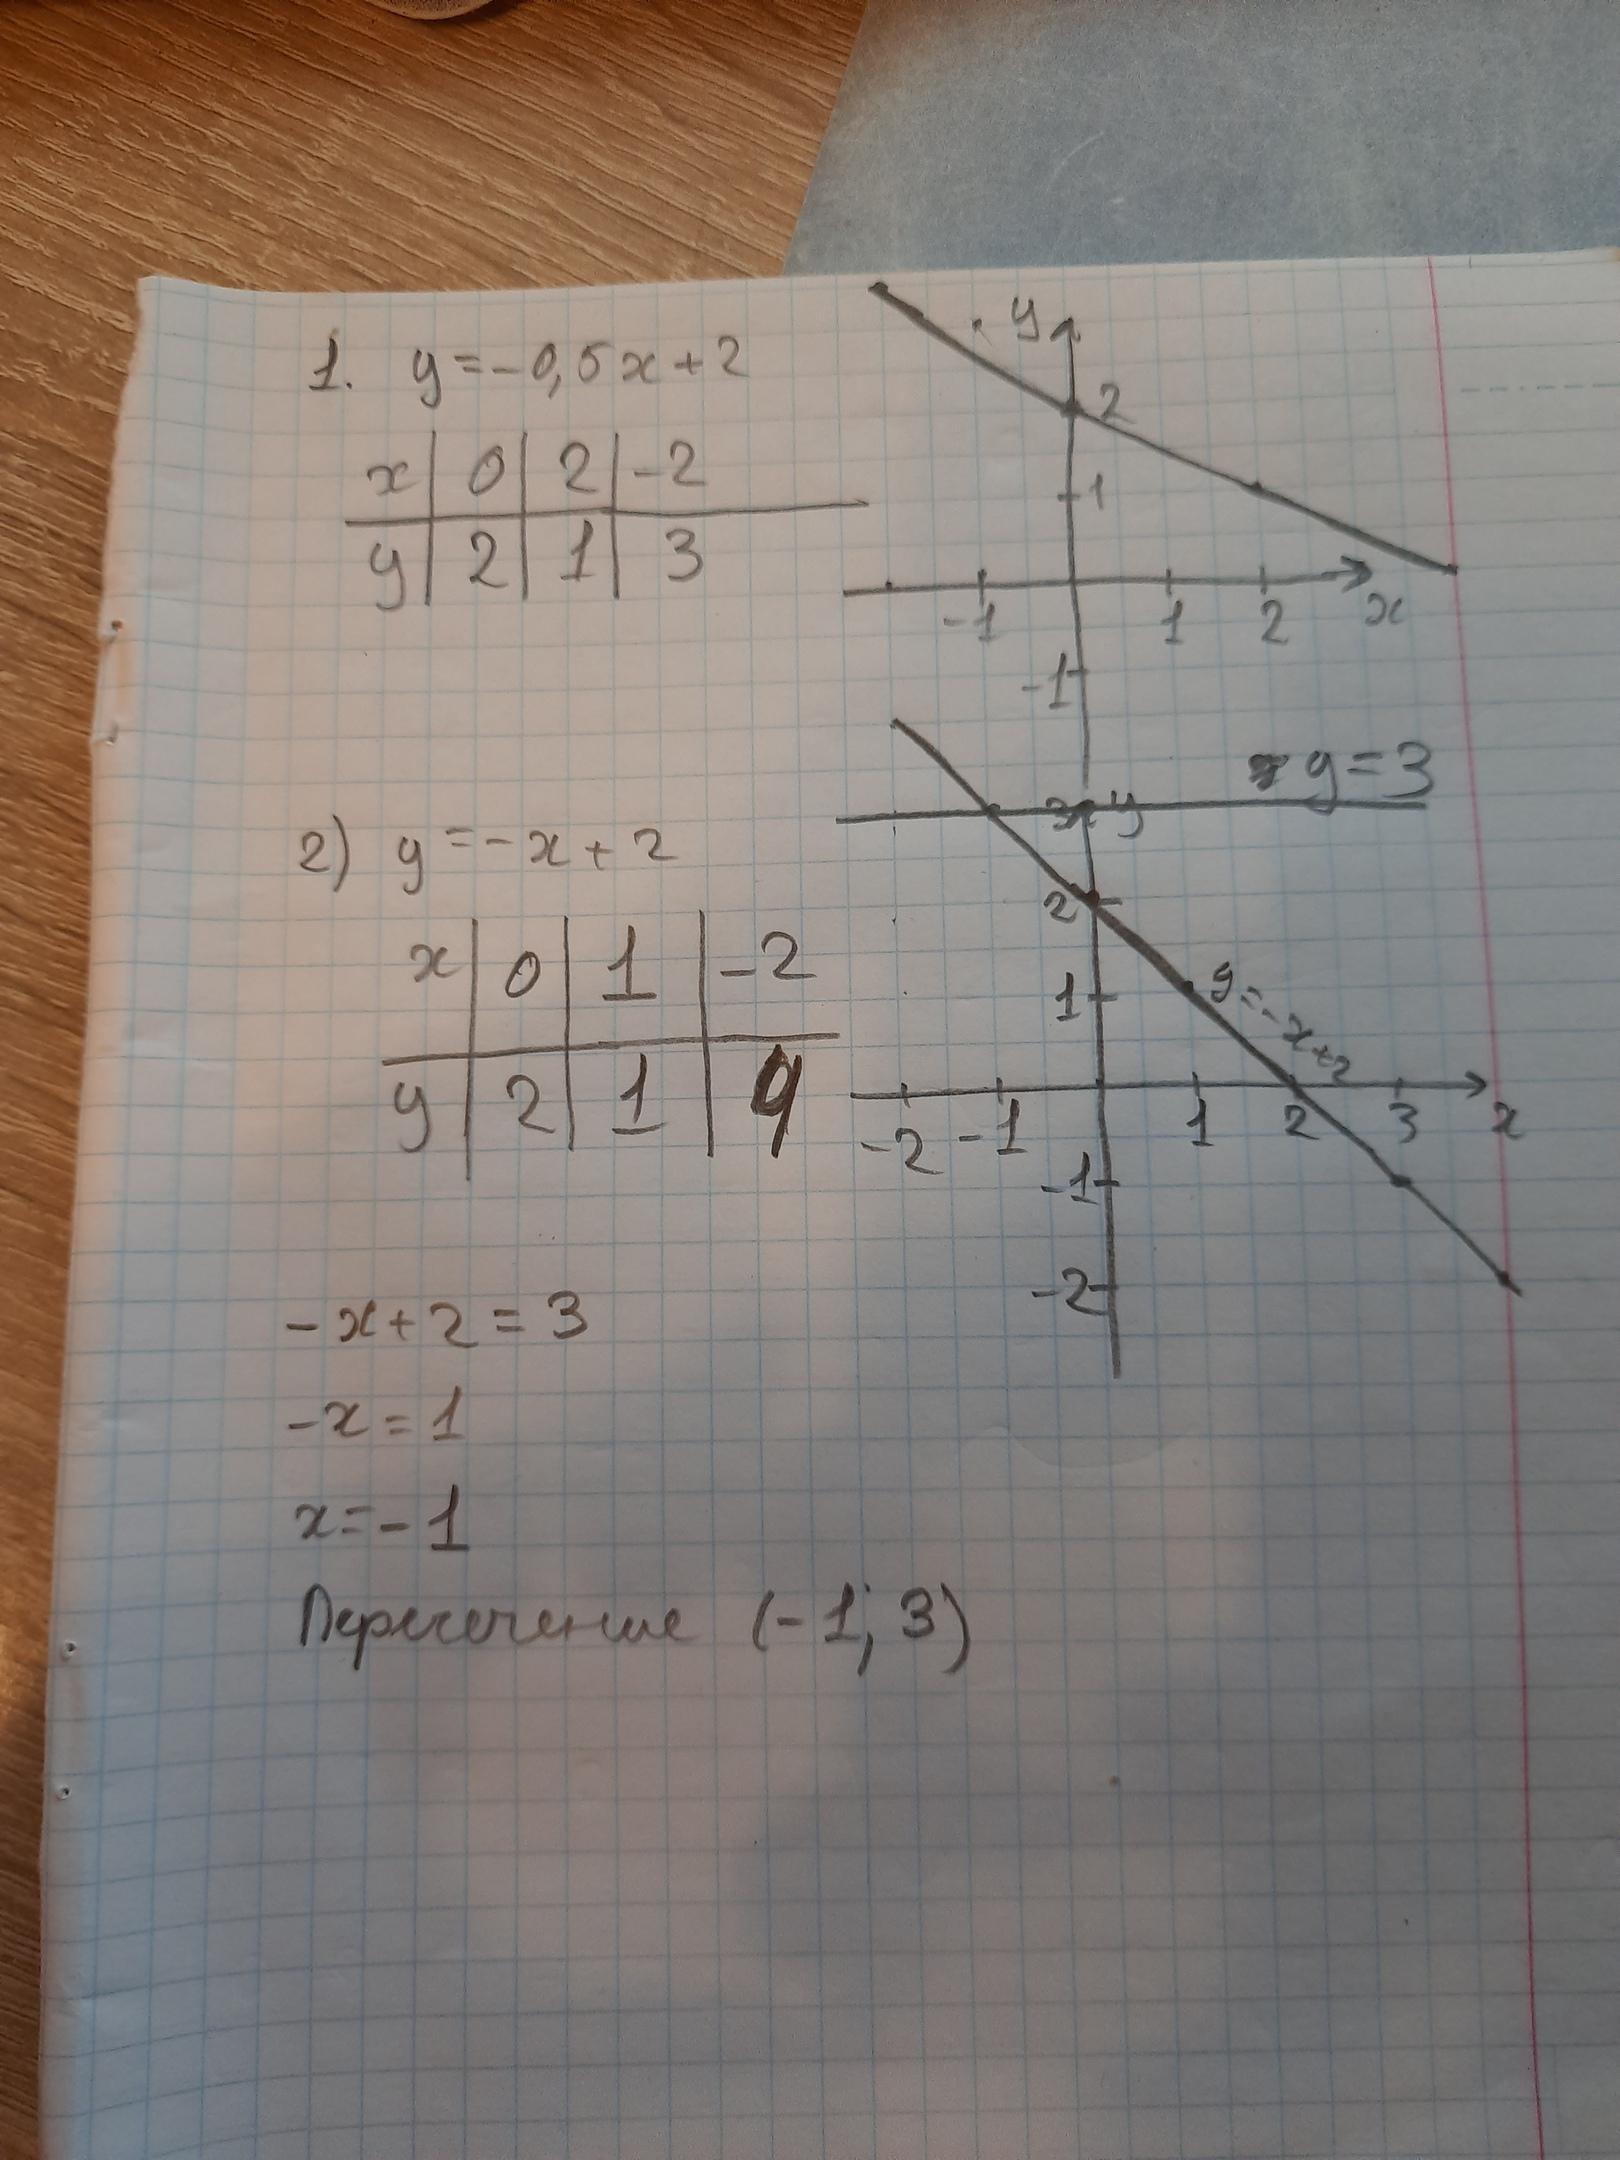 1. y = -0,5x + 2
x 0 2 -2
y 2 1 3
y
2
1
-1 1 2 x
-1
2) y = -x + 2
x 0 1 -2
y 2 1 4
y = 3
3 y
2
1
y = -x + 2
-2 -1 1 2 3 x
-1
-2
-x + 2 = 3
-x = 1
x = -1
Пересечение (-1; 3)